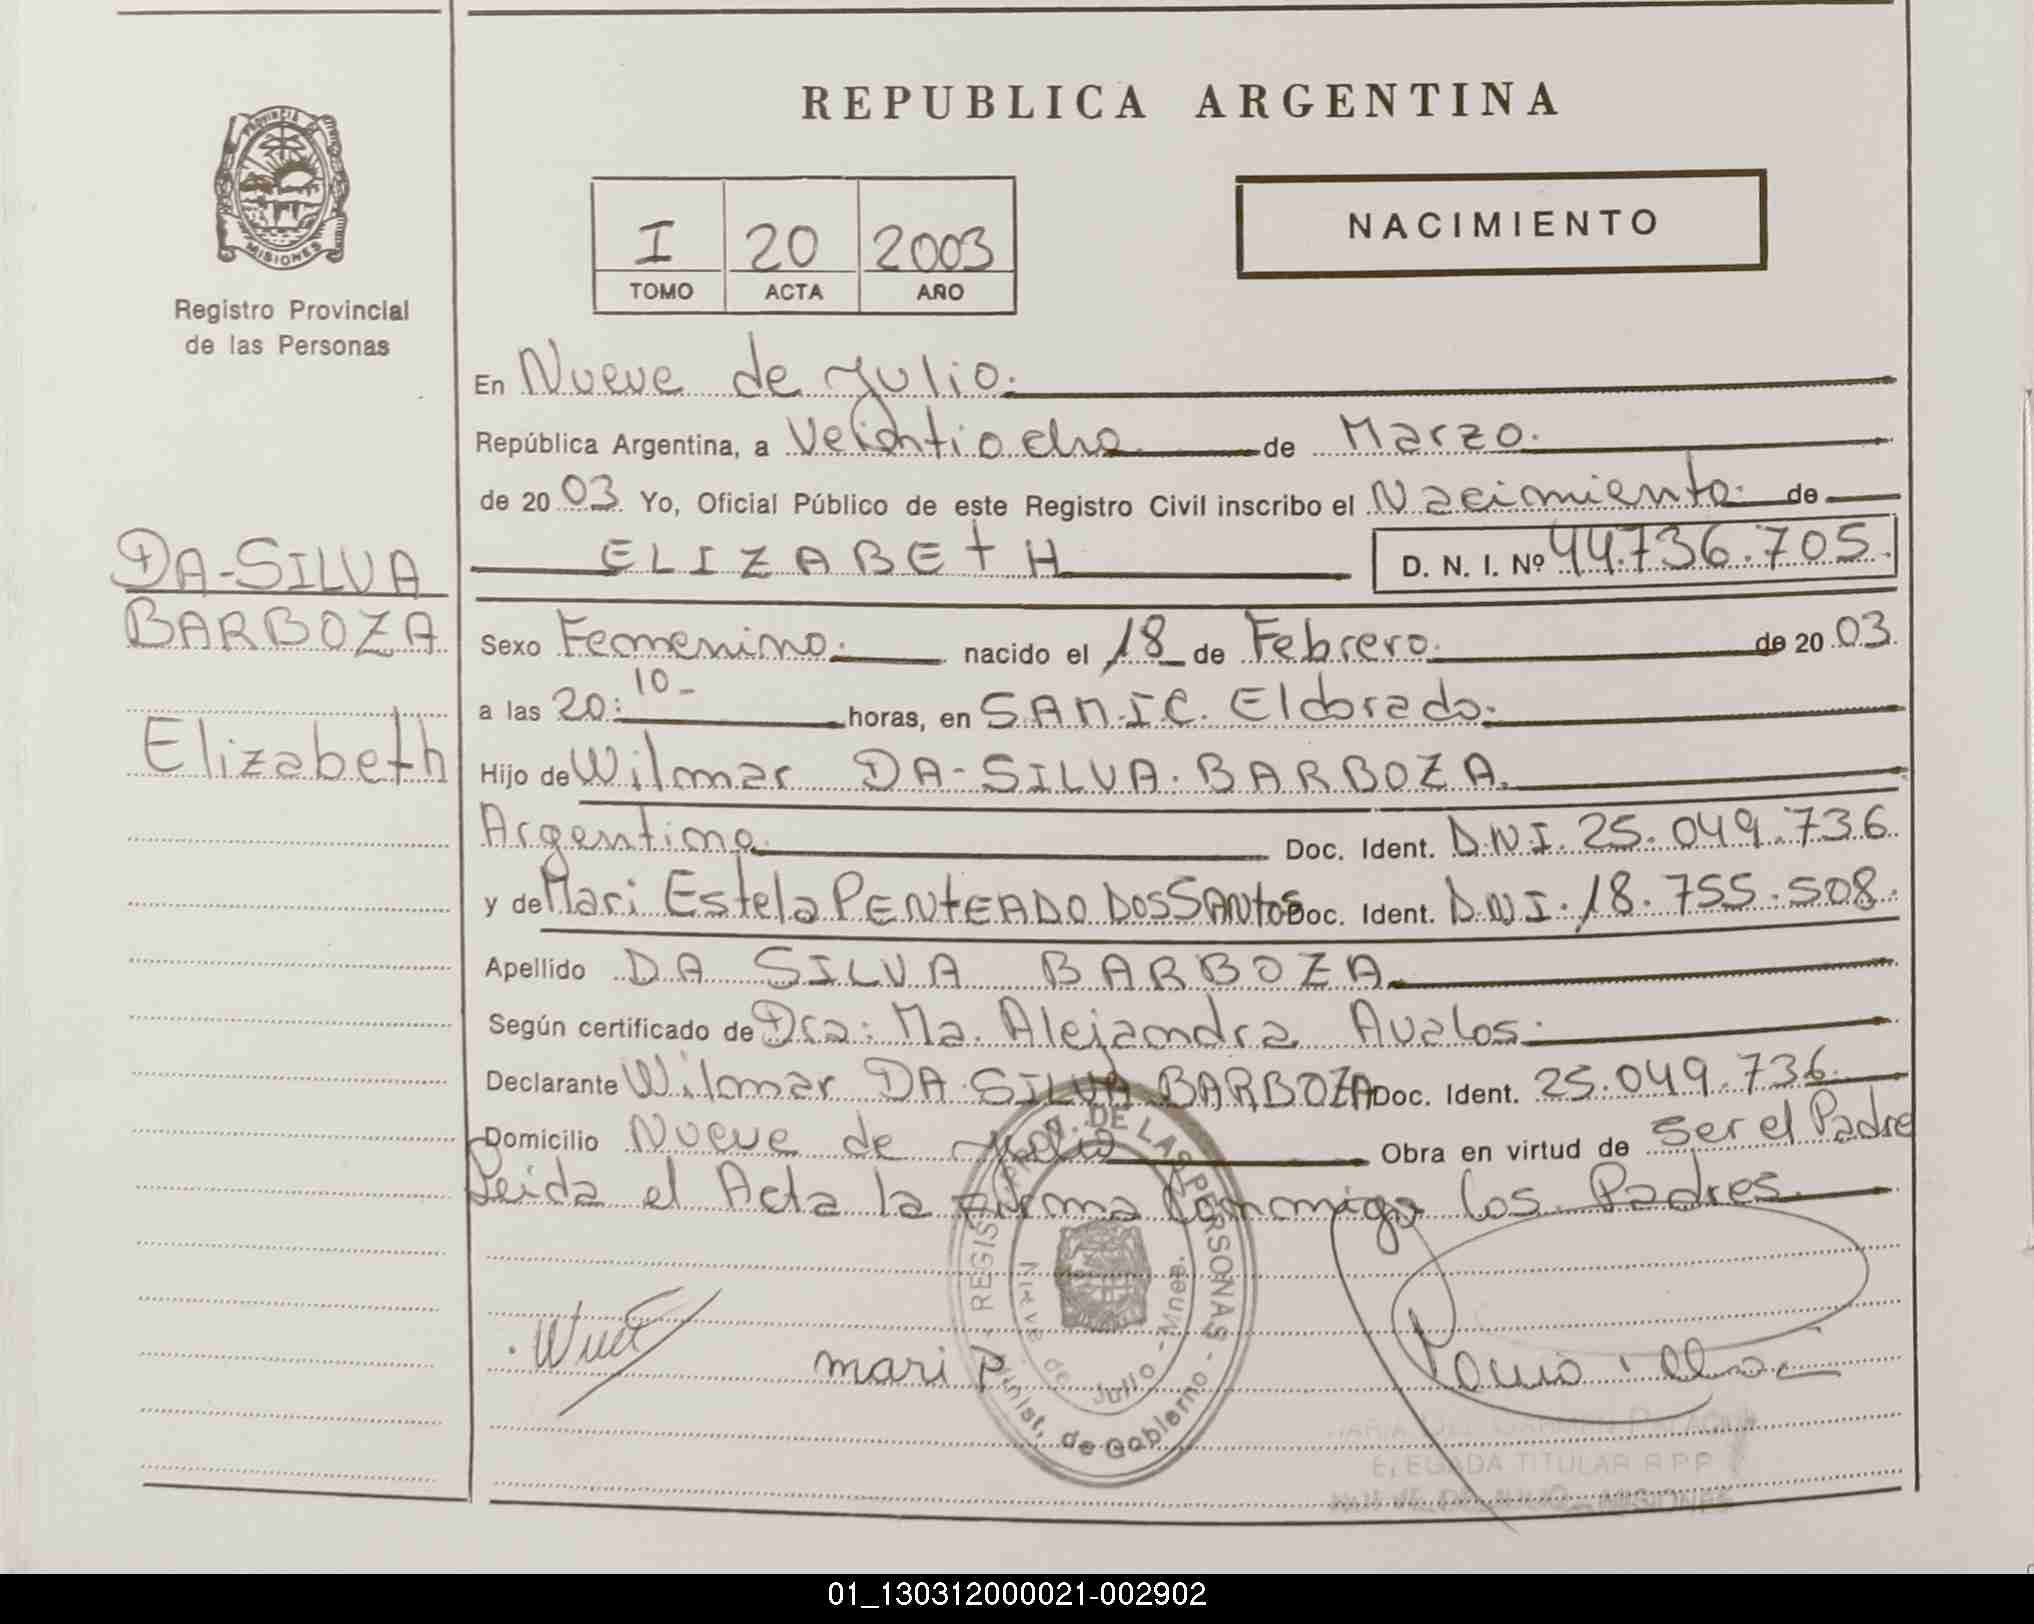 REPUBLICA ARGENTINA
PROVINCIA DE
MISIONES
Registro Provincial
de las Personas
I 20 2003
TOMO ACTA AÑO
NACIMIENTO
En Nueve de Julio.
República Argentina, a Veintiocho de Marzo.
de 20 03 Yo, Oficial Público de este Registro Civil inscribo el Nacimiento de
ELIZABETH D. N. I. Nº 44.736.705.
DA-SILVA
BARBOZA
Elizabeth
Sexo Femenino. nacido el 18 de Febrero. de 20 03.
a las 20:10- horas, en S.A.M.I.C. Eldorado.
Hijo de Wilmar DA-SILVA.BARBOZA.
Argentino Doc. Ident. D.N.I. 25.049.736.
y de Mari Estela PENTEADO DOS SANTOS Doc. Ident. D.N.I. 18.755.508.
Apellido DA SILVA BARBOZA
Según certificado de Dra: Ma. Alejandra Avalos.
Declarante Wilmar DA SILVA BARBOZA Doc. Ident. 25.049.736.
Domicilio Nueve de Julio Obra en virtud de ser el Padre
Leida el Acta la firma conmigo los Padres.
mari P
DE LAS PERSONAS
de Julio - Mnes.
Minist. de Gobierno
TITULAR R.P.P.
MISIONES
01_130312000021-002902